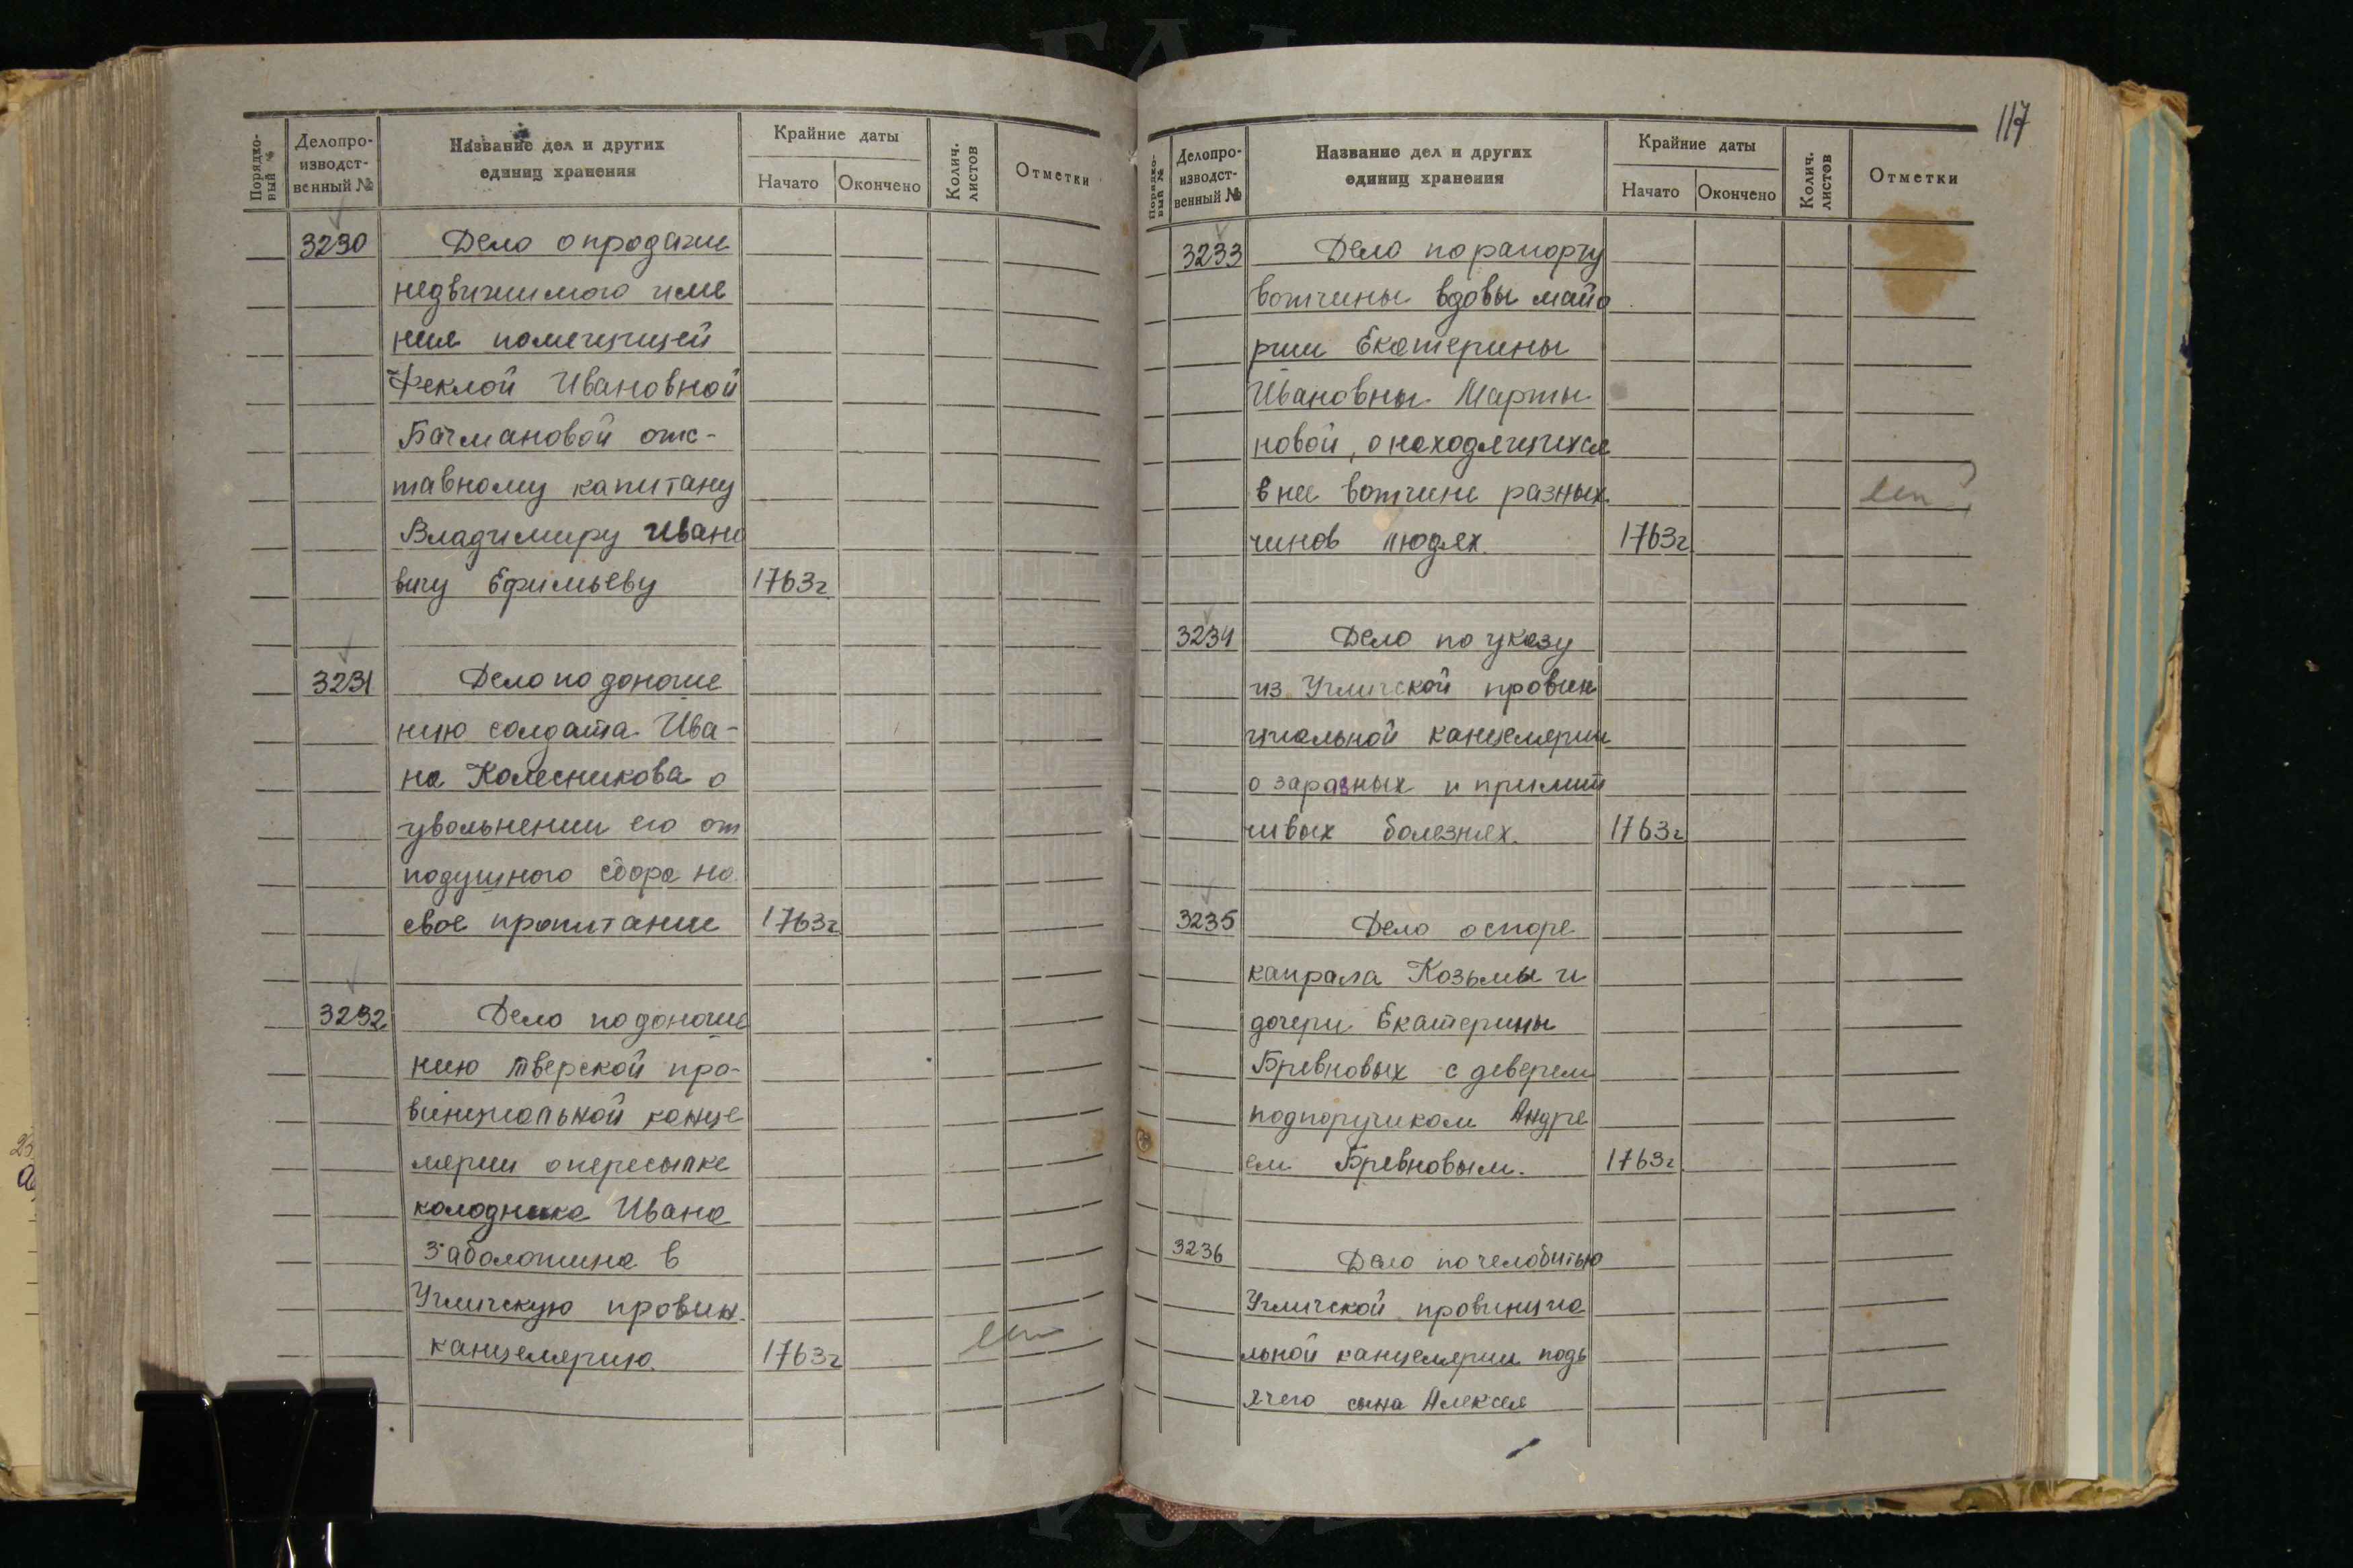 Порядко-
вый №
Делопро-
изводст-
венный №
Название дел и других
единиц хранения
Крайние даты
Начато
Окончено
Колич.
листов
Отметки
3230
Дело о продаже
недвижимого име
ния помещицей
Феклой Ивановной
Бачмановой отс-
тавному капитану
Владимиру Ивано
вичу Ефимьеву 1763г
3231
Дело по доноше
нию солдата Ива-
на Колесникова о
увольнении его от
подушного сбора на
свое пропитание 1763г
3232
Дело по доноше
нию тверской про-
винциальной канце
лярии о пересылке
колодника Ивана
Заболотина в
Угличскую провин.
канцелярию. 1763г
117
Порядко-
вый №
Делопро-
изводст-
венный №
Название дел и других
единиц хранения
Крайние даты
Начато
Окончено
Колич.
листов
Отметки
3233
Дело по рапорту
вотчины вдовы майо
рши Екатерины
Ивановны Марты
новой, о находящихся
в ее вотчине разных
чинов людях 1763г
3234
Дело по указу
из Угличской провин
циальной канцелярии
о заразных и прилип
чивых болезнях. 1763г
3235
Дело о споре
капрала Козьмы и
дочери Екатерины
Бревновых с деверем
подпоручиком Андре
ем Бревновым. 1763г
3236
Дело по челобитью
Угличской провинциа
льной канцелярии подь
ячего сына Алексея